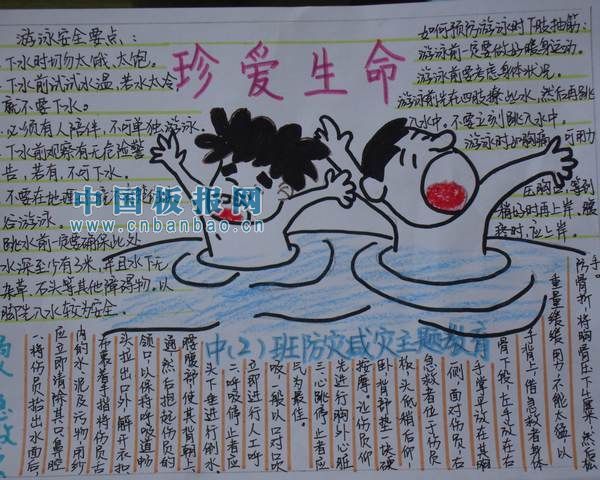 珍爱生命
游泳安全要点：
下水时切勿太饿、太饱。
下水前试试水温，若水太冷
就不要下水。
必须有人陪伴，不可单独游泳。
下水前观察有无危险警
告，若有，不可下水。
不要在地
谷游泳
跳水前一定要确保此处
水深至少有3米，并且水下无
杂草、石头等其他障碍物。以
脚先入水较为安全。
如何预防游泳时下肢抽筋：
游泳前一定要做好暖身运动。
游泳前要考虑身体状况。
游泳前先在四肢撩些水，然后再跳
入水中。不要立刻跳入水中。
游泳时如胸痛，可用力
压胸口，等到
稍好时再上岸。腰
时，应上岸。
中国板报网
www.cnbanbao.cn
中(2)班防灾减灾主题教育
一将伤员抬出水面后，
应立即清除其口鼻腔
内的水、泥及污物，用纱
布裹着手指将伤员舌
头拉出口外，解开衣扣
领口，以保持呼吸道畅
通，然后抱起伤员的
腰腹部，使其背朝上
头下垂进行倒水。
二呼吸停止者应
立即进行人工呼
吸，一般以口对口吹
气为最佳。
三心跳停止者应
先进行胸外心脏
按摩。让伤员仰
卧，背部垫一块硬
板，头低稍后仰，
急救者位于伤员
侧，面对伤员，右
手掌平放在其胸
骨下段，左手放在右
手背上，借急救者身体
重量缓缓用力，不能太猛，以
防骨折，将胸骨压下
手